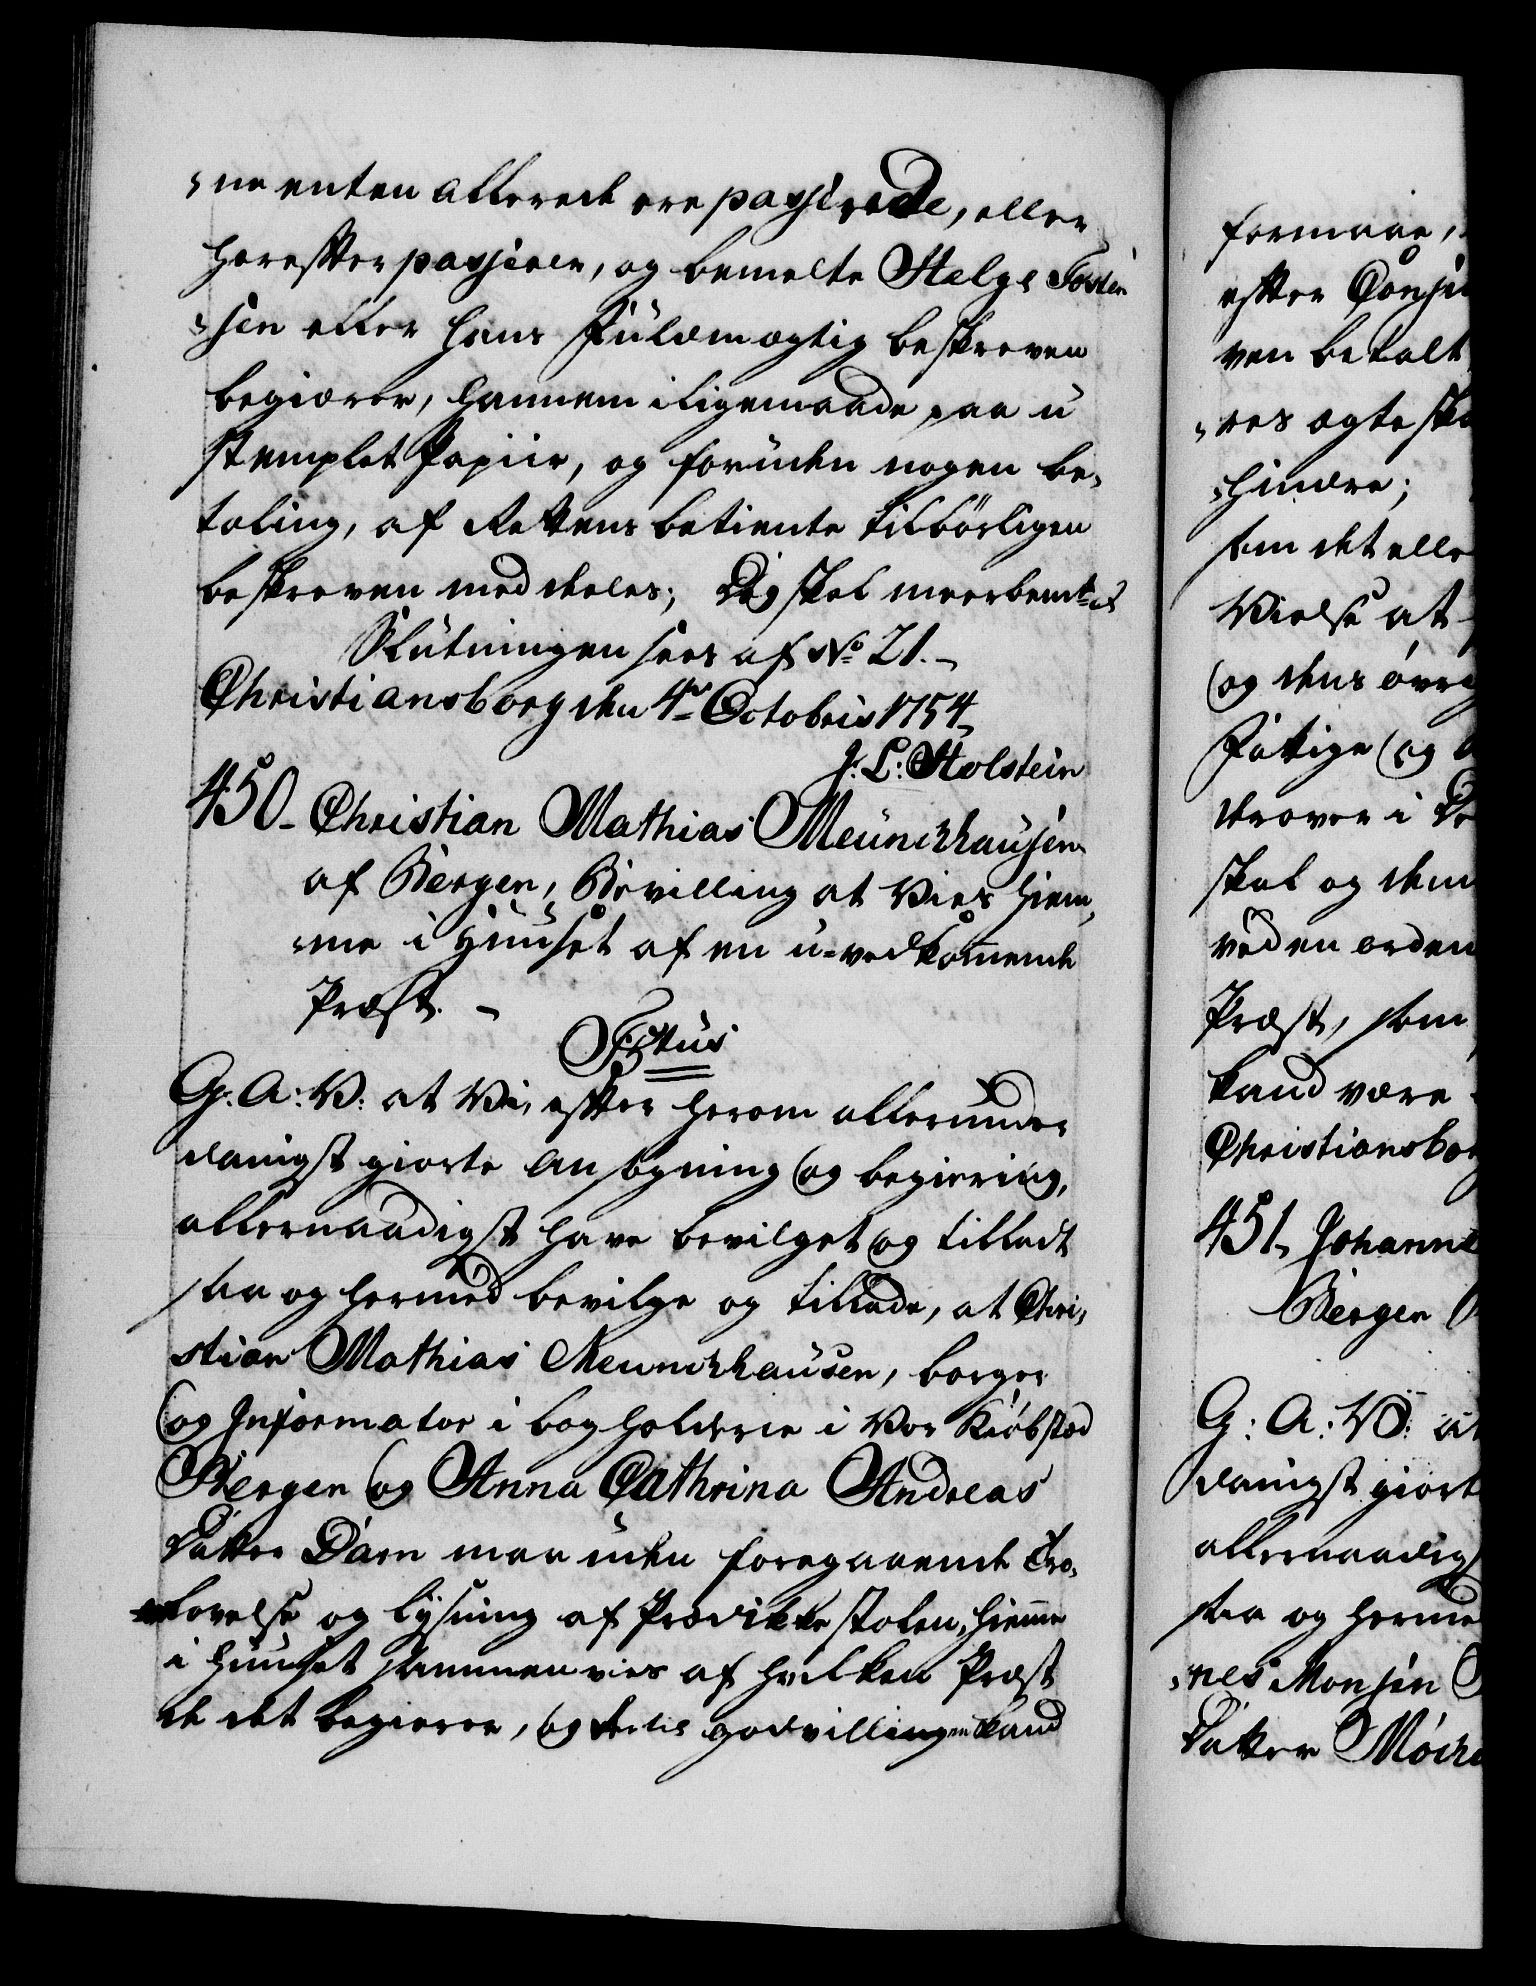 "ne enten allerede ere passerede, eller
herefter passerer, og bemelte Helge Tosten
"sen eller hans Fuldmægtig beskreven
begiærer, hannem iligemaade paa u
stemplet Papiir, og foruden nogen be,
taling, af Rettens betiente tilbörligen
beskreven meddeles; Og skal meerbemte
Slutningen sees af No 21.
Christiansborg den 4de Octobris 1754
J: L: Holstein
450. Christian Mathias Meünchhausen
af Bergen, Bevilling at Vies hiem,
"me i Huuset af en u-vedkom̅ende
Præst.
Fictus
G. A: V: at Vi, efter herom allerunder
danigst giorte Ansøgning og begiering,
allernaadigst have bevilget og tilladt
saa og hermed bevilge og tillade, at Chri,
stian Mathias Meunchhausen, borger
og Informator i bogholderie i Vor Kiöbstad
Bergen og Anna Cathrina Andreas
Datter Dam maa uden foregaaende Tro,
lovelse og lysning af Prædikkestolen, hiem̅e
i Huuset sammen vies af hvilken Præst
de det begierer, og dertil godvilligen kand
formaae,
efter Consi
ven betalt
"res ægteska
"hindre;
som det elle
Vielse at
og dens övri
Fattige og
drover i
skal og dem
ved en orden
Præst, som
kand være
Christiansborg
451. Johanne
Bergen
G: A: V: at
danigst giort
allernaadigs
saa og herme
"nes Monsen
Datter Möch